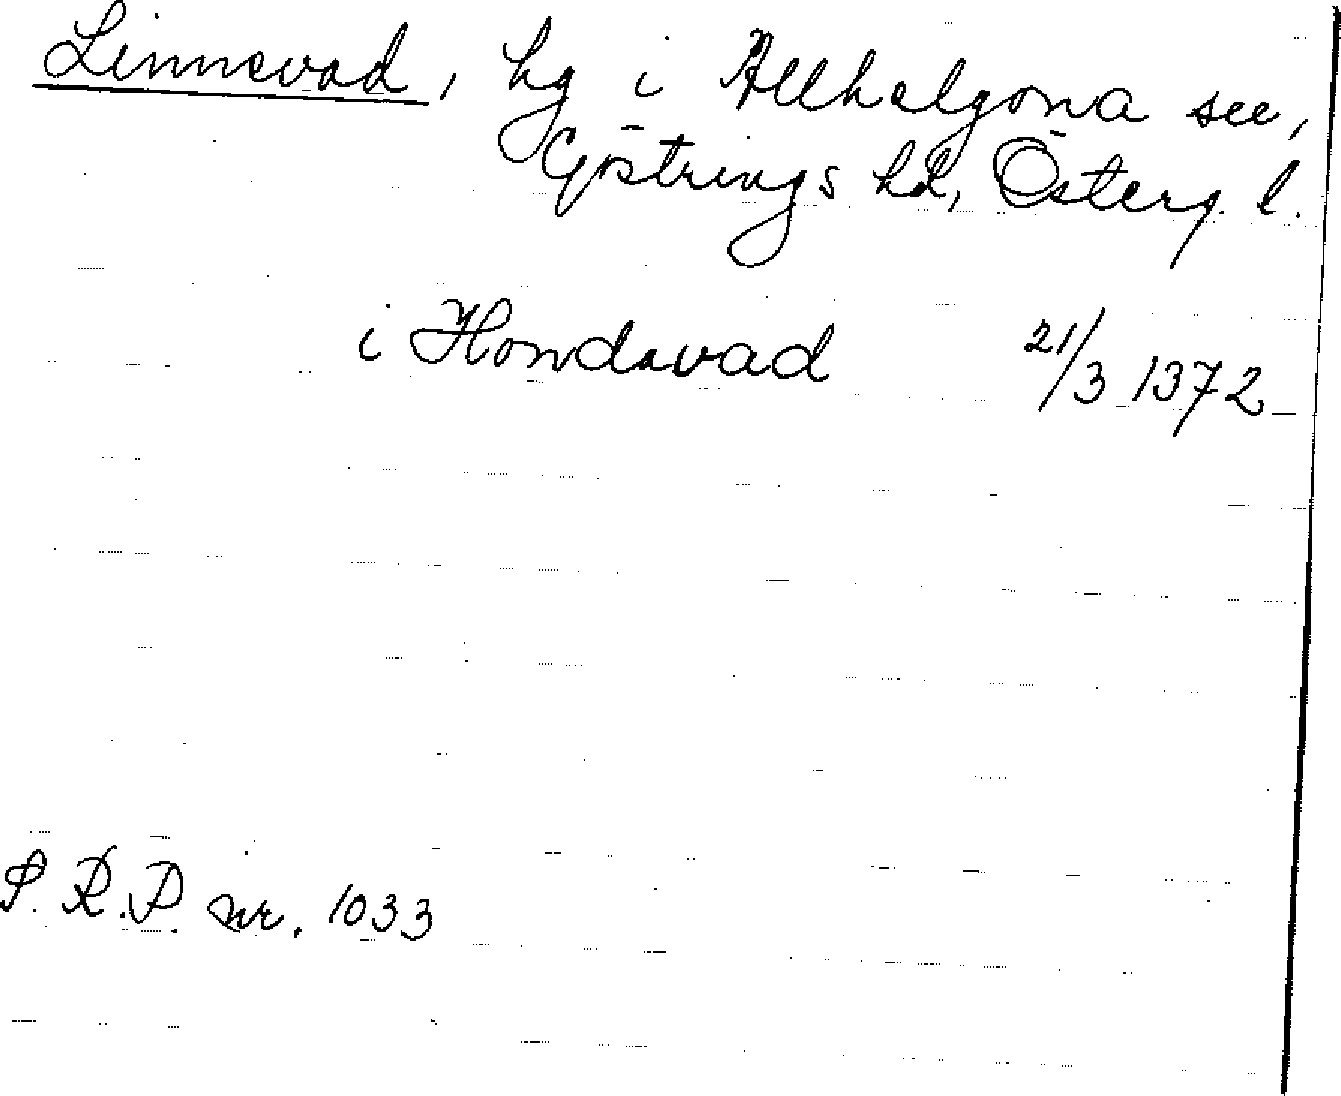 Linnevad, hg i Allhelgona sn,
Göstrings hd, Österg. l.
i Hondavad 21/3 1372
S. R. P. nr. 1033